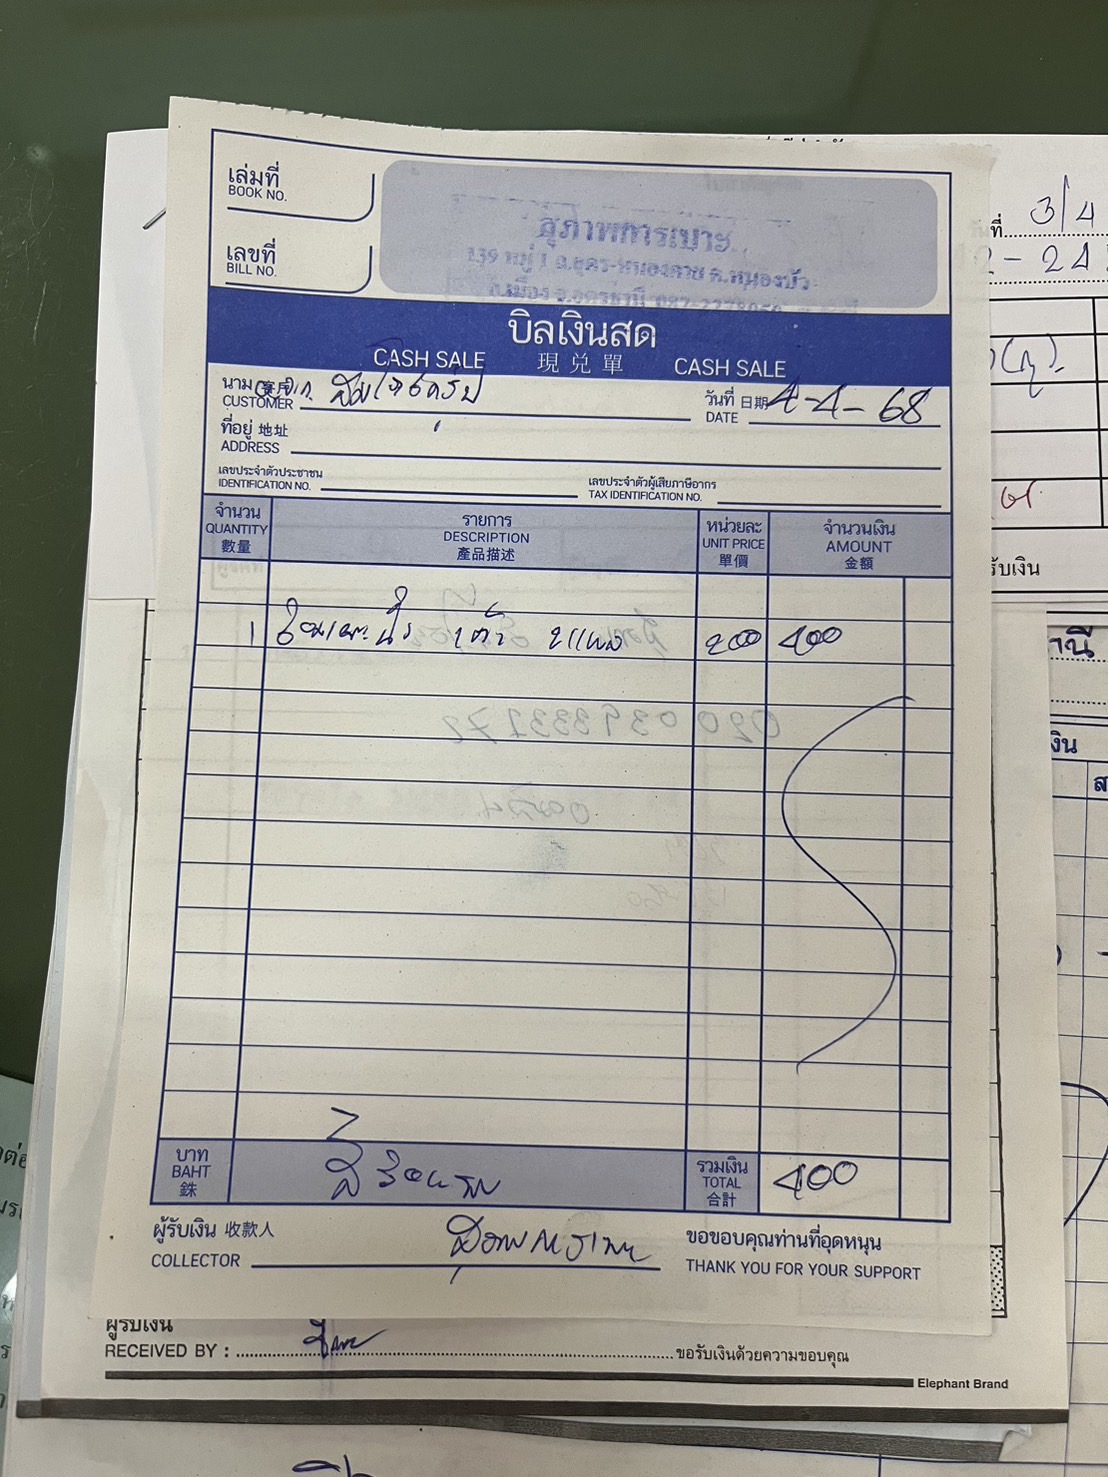 เล่มที่
BOOK NO.
เลขที่
BILL NO.
สุภาพการเบาะ
139 หมู่ 1 ถ.อุดร-หนองคาย ต.หมูม่น
อ.เมือง จ.อุดรธานี
บิลเงินสด
CASH SALE 現兌單 CASH SALE
นาม 客戶
CUSTOMER
วันที่ 日期 4-4-68
DATE
ที่อยู่ 地址
ADDRESS
เลขประจำตัวประชาชน
IDENTIFICATION NO.
เลขประจำตัวผู้เสียภาษีอากร
TAX IDENTIFICATION NO.
จำนวน รายการ หน่วยละ จำนวนเงิน
QUANTITY DESCRIPTION UNIT PRICE AMOUNT
數量 產品描述 單價 金額
1 200 400
บาท
BAHT
銖
สี่ร้อยบาท
รวมเงิน
TOTAL 400
合計
ผู้รับเงิน 收款人
COLLECTOR
ขอขอบคุณท่านที่อุดหนุน
THANK YOU FOR YOUR SUPPORT
ผู้รับเงิน
RECEIVED BY :
ขอรับเงินด้วยความขอบคุณ
Elephant Brand
ที่ 3/4
รับเงิน
านี
เงิน